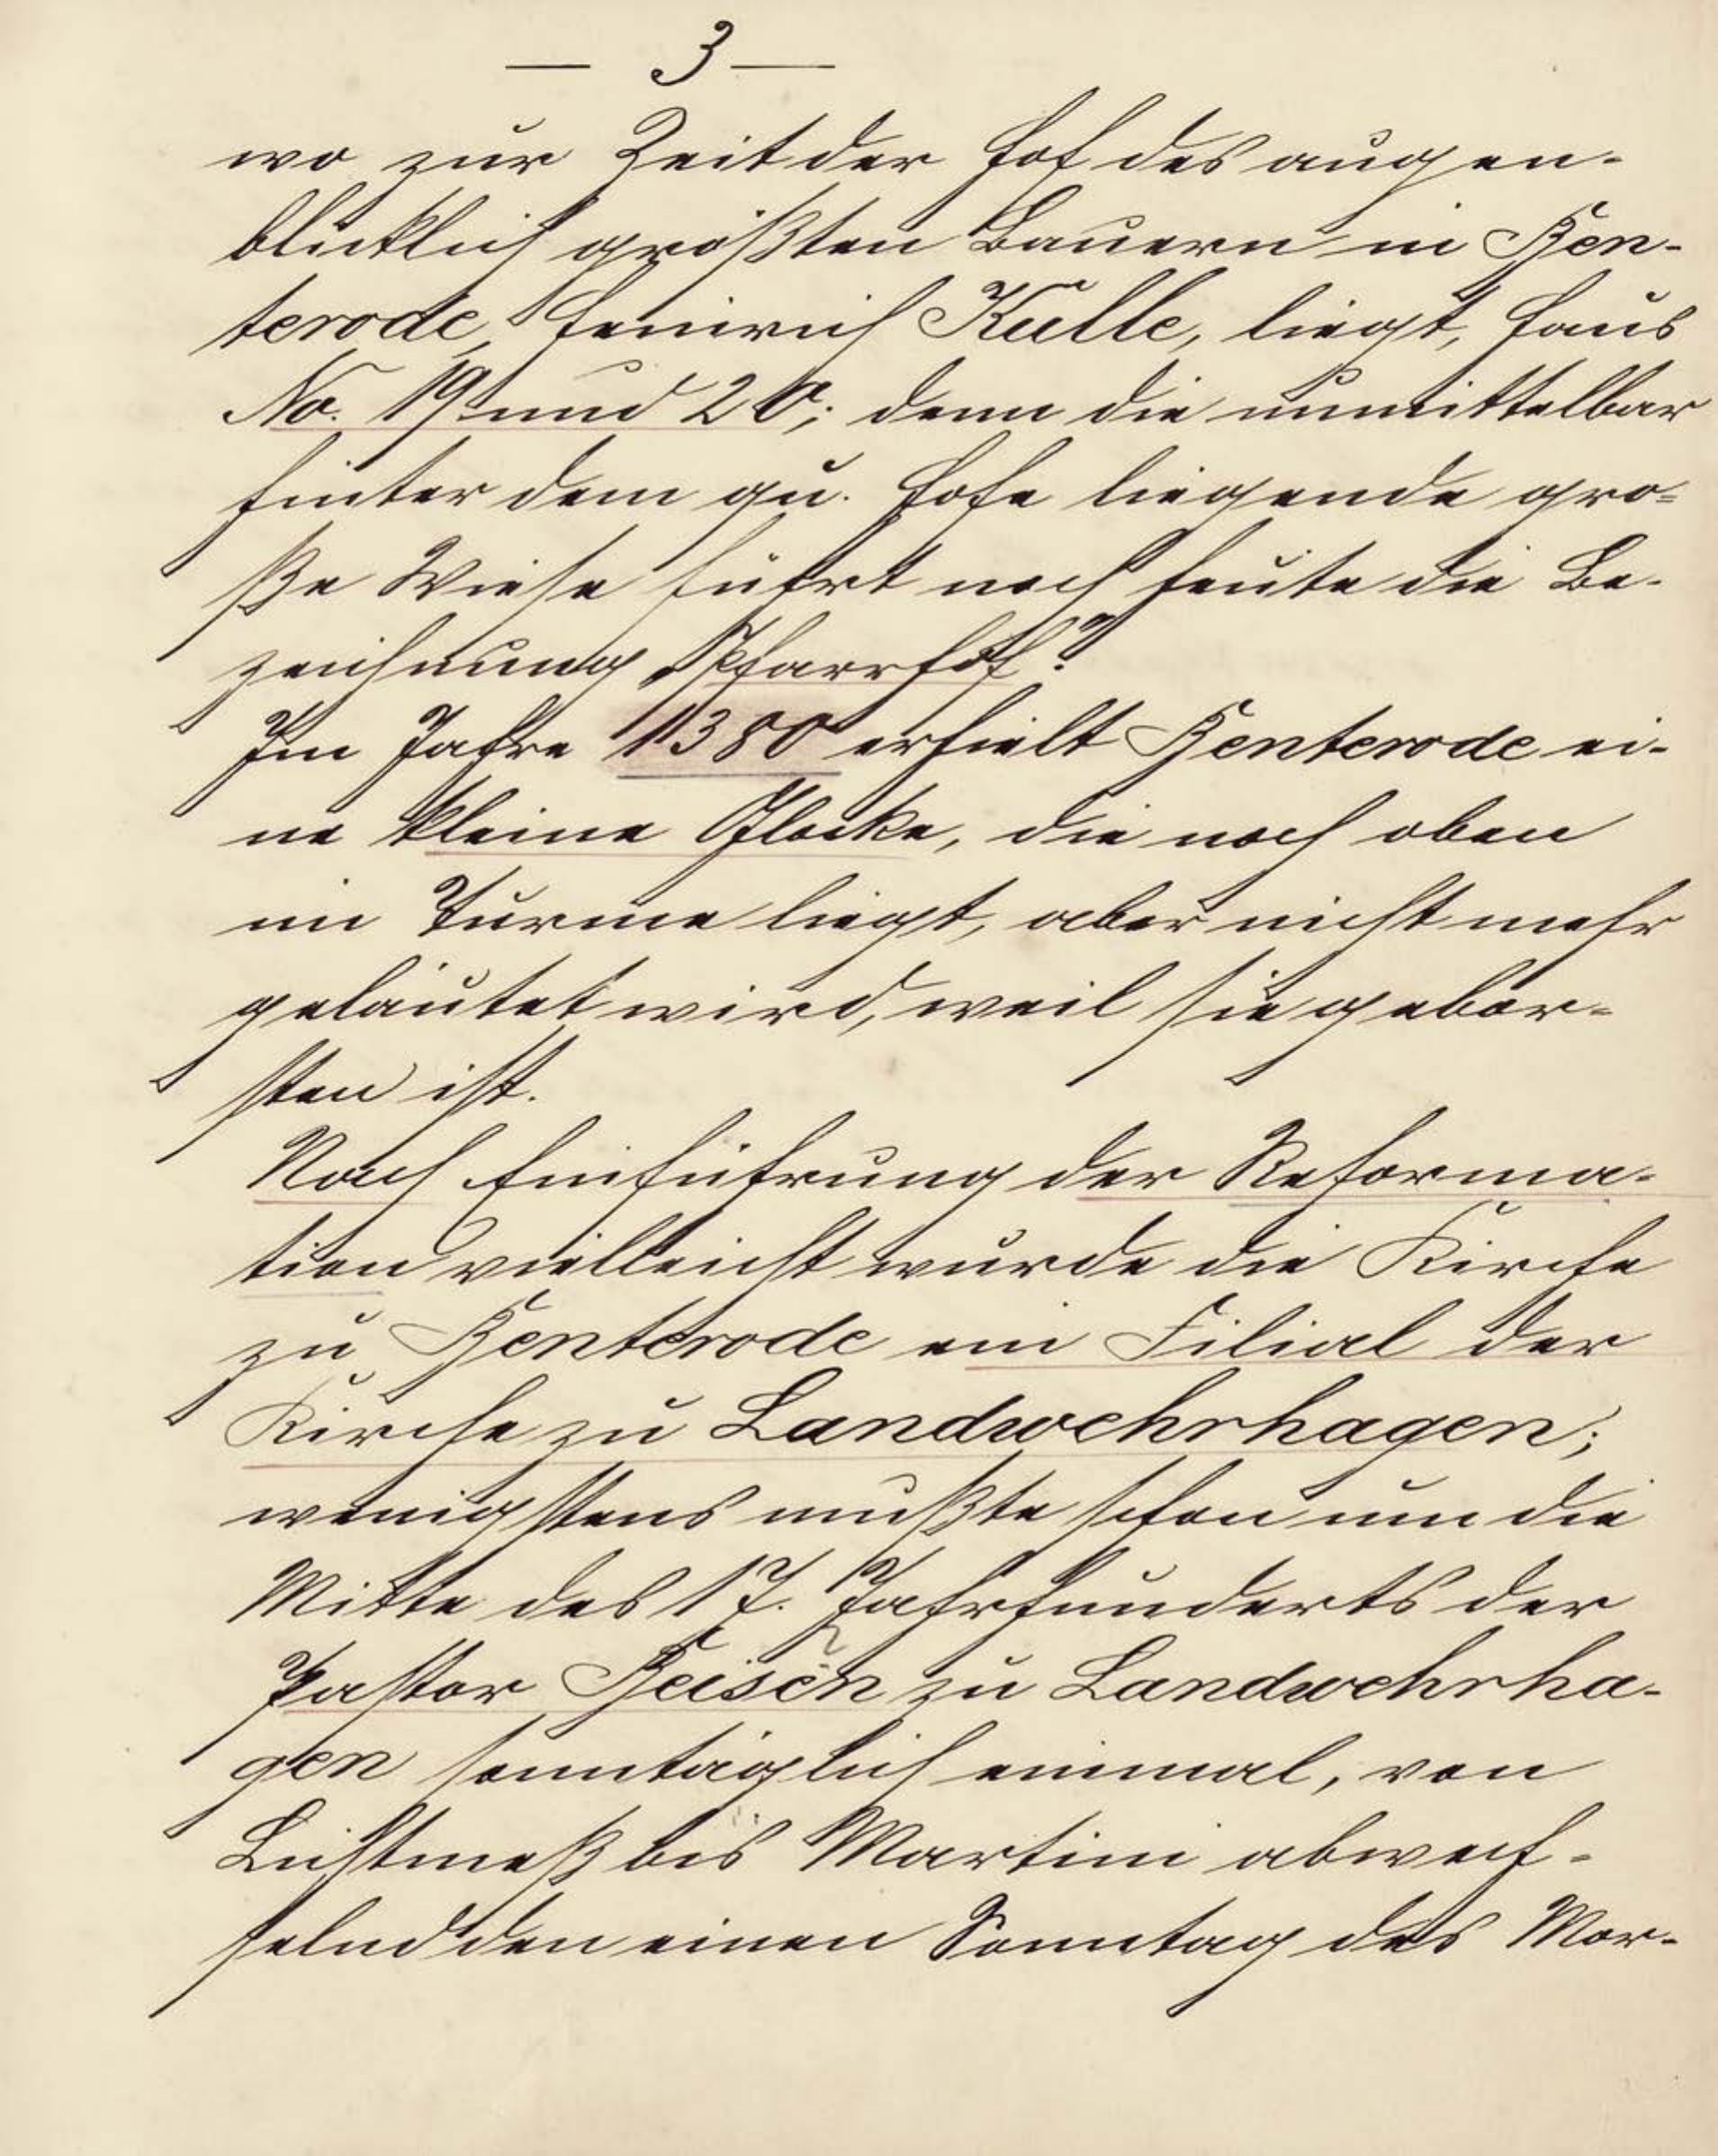 — 3 —
wo zur Zeit der Hof des augen-
blicklich größten Bauern in Ben-
terode, Heinrich Kulle, liegt, Haus
No. 19 und 20; denn die unmittelbar
hinter dem qu. Hofe liegende gro-
ße Wiese führt noch heute die Be-
zeichnung „Pfarrhof“.
Im Jahre 1380 erhielt Benterode ei-
ne kleine Glocke, die noch oben
im Turme liegt, aber nicht mehr
geläutet wird, weil sie gebor-
sten ist.
Nach Einführung der Reforma-
tion vielleicht wurde die Kirche
zu Benterode ein Filial der
Kirche zu Landwehrhagen;
wenigstens mußte schon um die
Mitte des 17. Jahrhunderts der
Pastor zu Landwehrha-
gen sonntäglich einmal, von
Lichtmeß bis Martini abwech-
selnd den einen Sonntag des Mor-